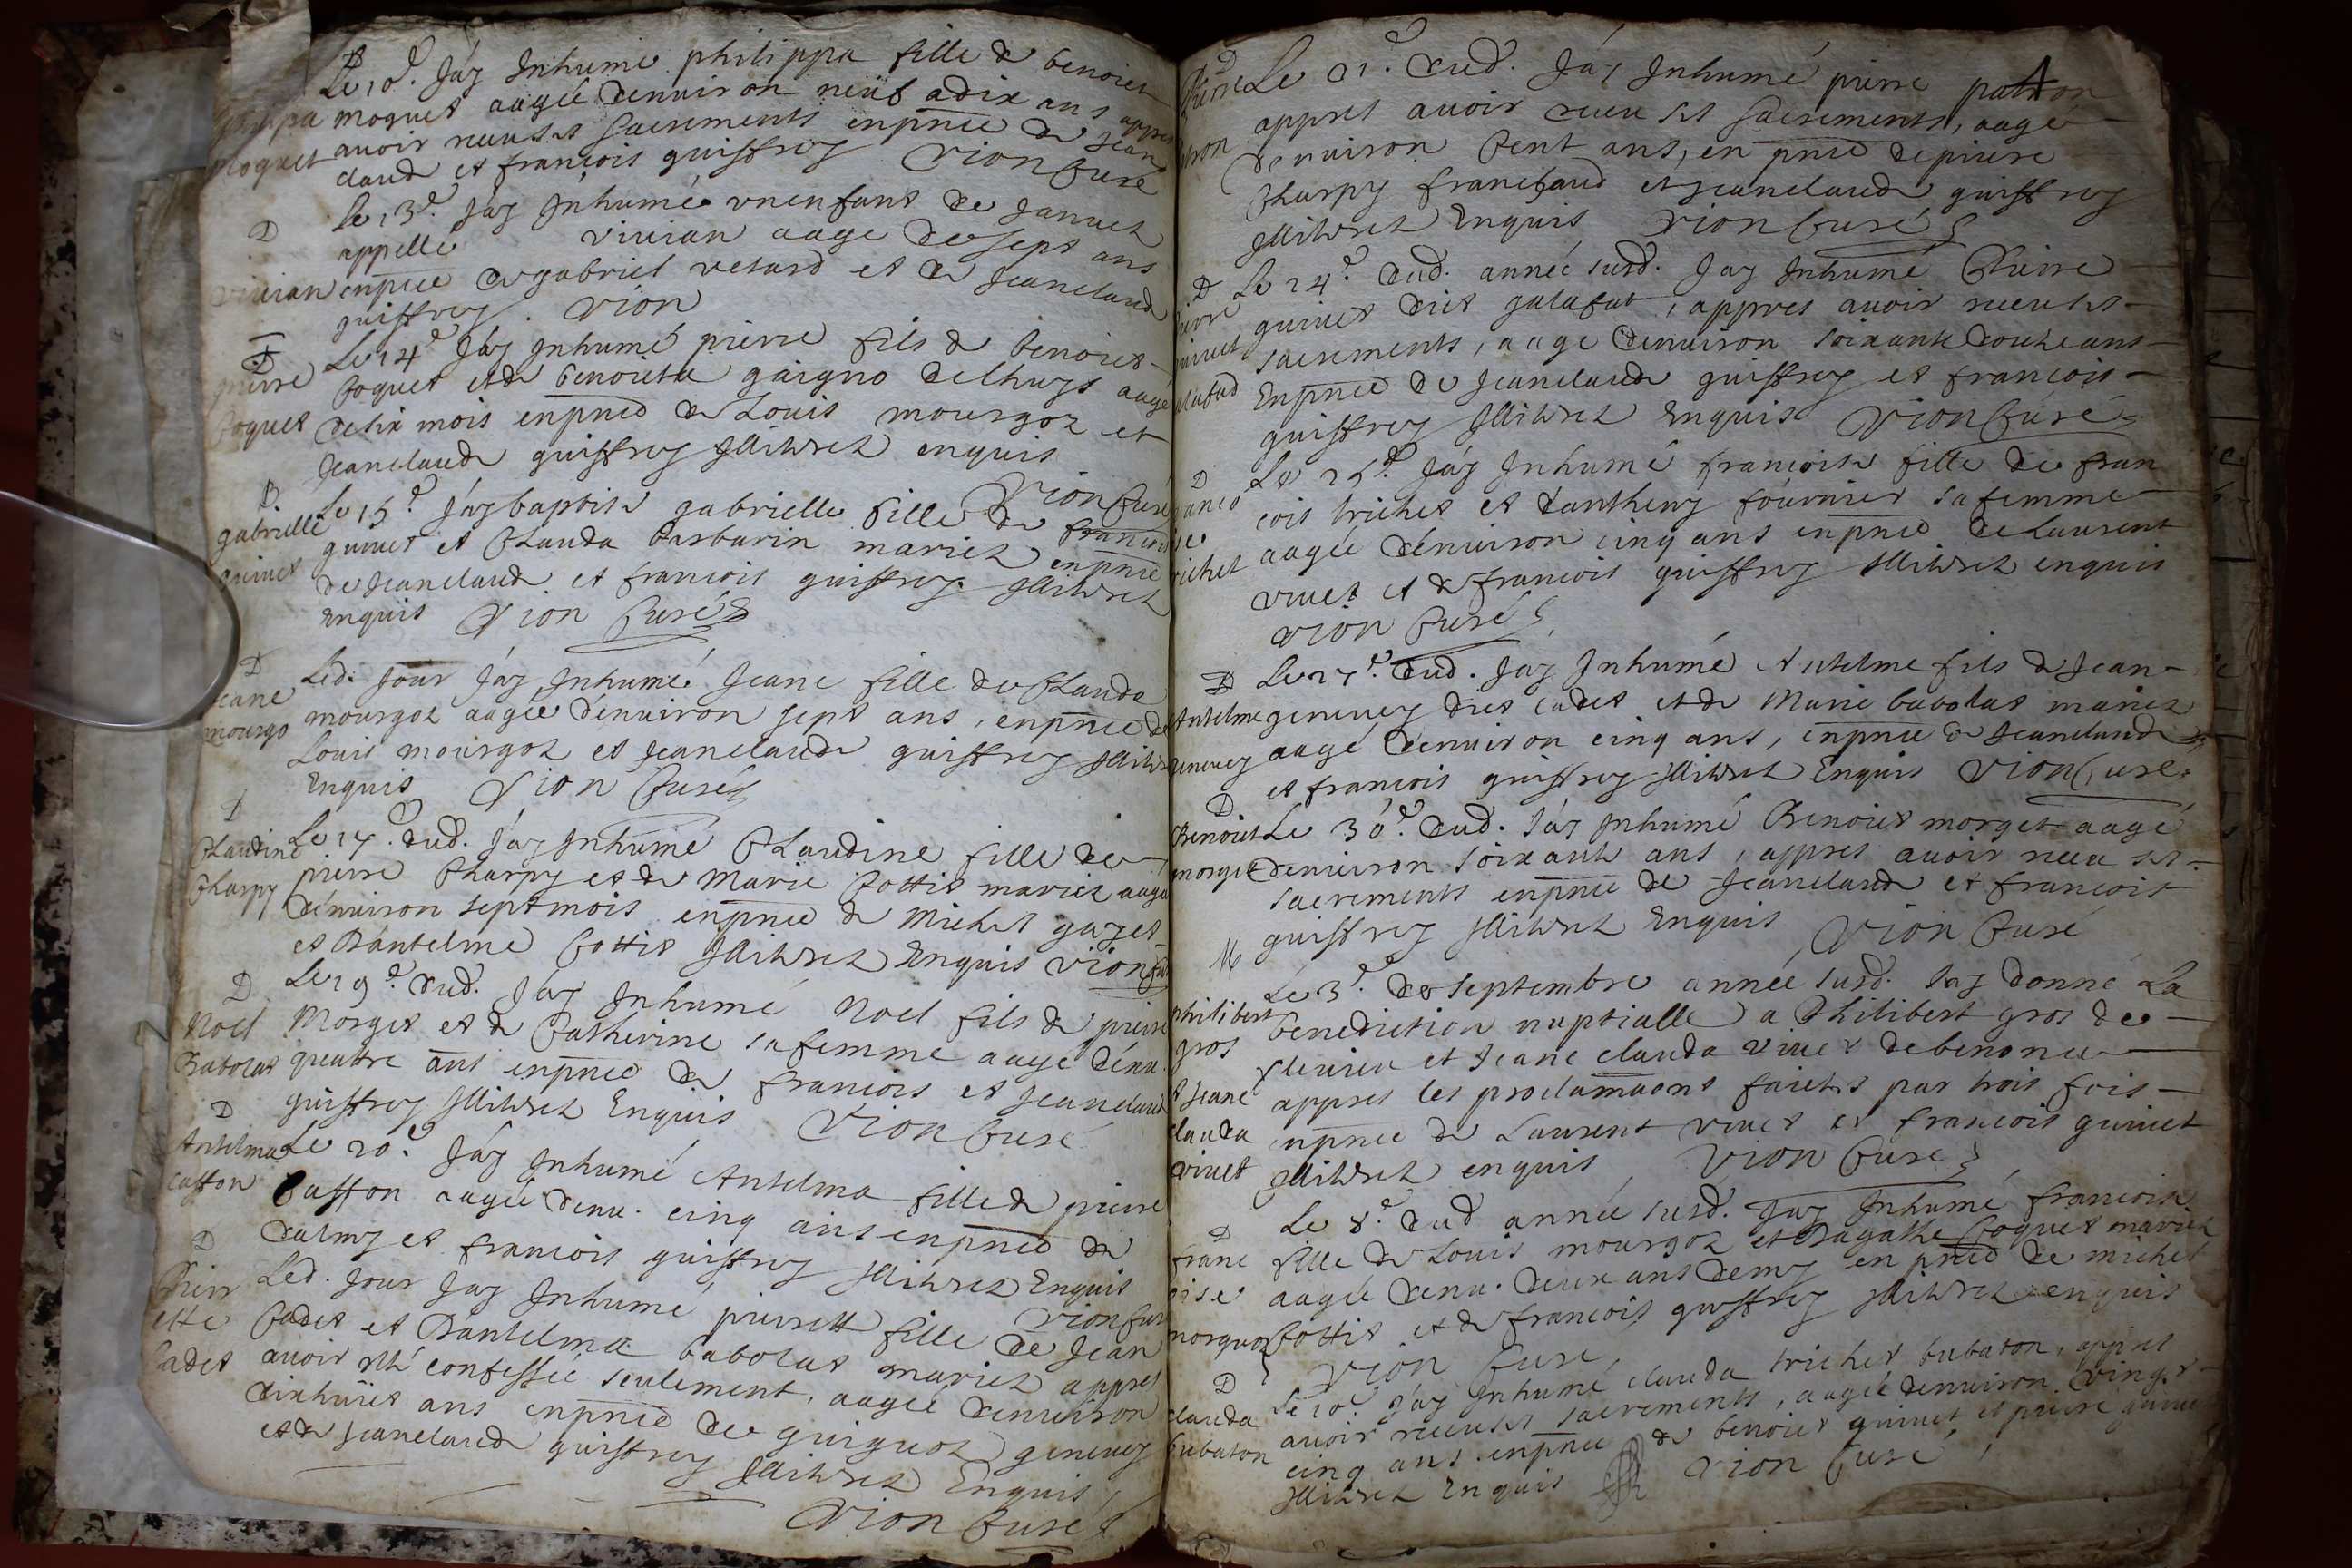 Le 10e. Jay Inhumé philippa fille de benoict
moquet aagée denuiron neuf a dix ans appres
auoir receu ses sacrements enpnce de Jean
claude et françois guiffrey Vion Curé
D
philippa
moquet
Le 13e. Jay Inhumé vn enfant de Januet
appellé viuian aage de sept ans
enpnce de gabriel vetard et de Jeanclaude
guiffrey. Vion
D
viuian
Le 14e Jay Inhumé pierre fils de benoict
Coquet et de benoicta gaigno delhuys aagé
de six mois enpnce de Louis mourgoz et
Jeanclaude guiffrey Illitérez enquis
Vion Curé
D
pierre
Coquet
Le 15e. Jay baptisé gabrielle fille de francois
guinet et Clauda barbarin mariez enpnce
de Jeanclaude et francois guiffrey. Illitérez
Enquis Vion Curé
B
gabrielle
guinet
Led. Jour Jay Inhumé Jeane fille de Clauda
mourgoz aagée denuiron sept ans, enpnce de
Louis mourgoz et Jeanclaude guiffrey Illité
Enquis Vion Curé
D
Jeane
mourgo
Le 17e. dud. Jay Inhumé Claudine fille de
pierre Charpy et de Marie Cottit mariez aagé
dénuiron sept mois enpnce de Michel gazet
et Dantelme Cottit Illitérez Enquis Vion Cu
D
Claudine
Charpy
Le 19e. dud. Jay Inhumé Noel fils de pierre
Morget et de Catherine sa femme aagé dénu.
queattre ans enpnce de francois et Jeanclaude
guiffrey Illitérez Enquis Vion Curé
D
Noel
Babolat
Le 20e. Jay Inhumé Antelma fille de pierre
Casson aagée denu. cinq ans enpnce de
dalmy et francois guiffrey Illitérez Enquis
Vion Cur
D
Antelma
casson
Led. Jour Jay Inhumé pierrett fille de Jean
Cadet et Dantelma babolat mariez appres
auoir esté confessée seulement, aagée denuiron
dixhuict ans enpnce de guiguoz geneuey
et de Jeanclaude guiffrey Illitérez Enquis
Vion Curé
D
Pierr
ette
Cadet
Le 21. dud. Jay Inhumé pierre patron
appres auoir receu ses sacrements, aagé
denuiron Cent ans, en pnce de pierre
Charpy francfaud et Jeanclaude guiffrey
Illitérez Enquis Vion Curé
D
Pierre
patron
Le 24e. dud. année susd. Jay Inhumé Pierre
guinet dict galafat, appres auoir receu ses
sacrements, aage denuiron soixante douze ans
Enpnce de Jeanclaude guiffrey et francois
guiffrey Illitérez Enquis Vion Curé
D
pierre
guinet
galafad
Le 25e. Jay Inhumé francoise fille de fran
cois trichet et danthemy fournier sa femme
aagée dénuiron cinq ans enpnce de Laurent
viuet et de francois guiffrey Illitérez enquis
Vion Curé
D
franco
ise
trichet
Le 27e. dud. Jay Inhumé Antelme fils de Jean
geneuey dict cadet et de Marie babolat mariez
aagé dénuiron cinq ans, enpnce de Jeanclaude
et francois guiffrey Illitérez Enquis Vion Curé.
D
Antelme
geneuey
Le 30e. dud. Jay Inhumé Benoict morget aagé
denuiron soixante ans, appres auoir receu ses
sacrements enpnce de Jeanclaude et francois
guiffrey Illitérez Enquis Vion Curé
D
Benoict
morget
Le 3e. de septembre année susd. Jay donné La
benediction nuptialle a Philibert gros de
fleurieu et Jeane clauda viuet de benonce
appres les proclamaons faictes par trois fois
enpnce de Laurent viuet et francois guinet
Illitérez enquis Vion Curé
M
philibert
gros
et Jeane
clauda
viuet
Le 8e. dud année susd. Jay Inhumé francoise
fille de Louis mourgoz et Dagathe Coquet mariez
aagée denu. deux ans demy en pnce de michel
Cottit et de francois guiffrey Illitérez enquis
Vion Curé,
D
franc
oise
morguoz
Le 10e Jay Inhumé clauda trichet bubaton, appres
auoir receu ses sacrements, aagée denuiron vingt
cinq ans enpnce de benoict guinet et pierre guinet
Illitérez Enquis Vion Curé
D
clauda
bubaton